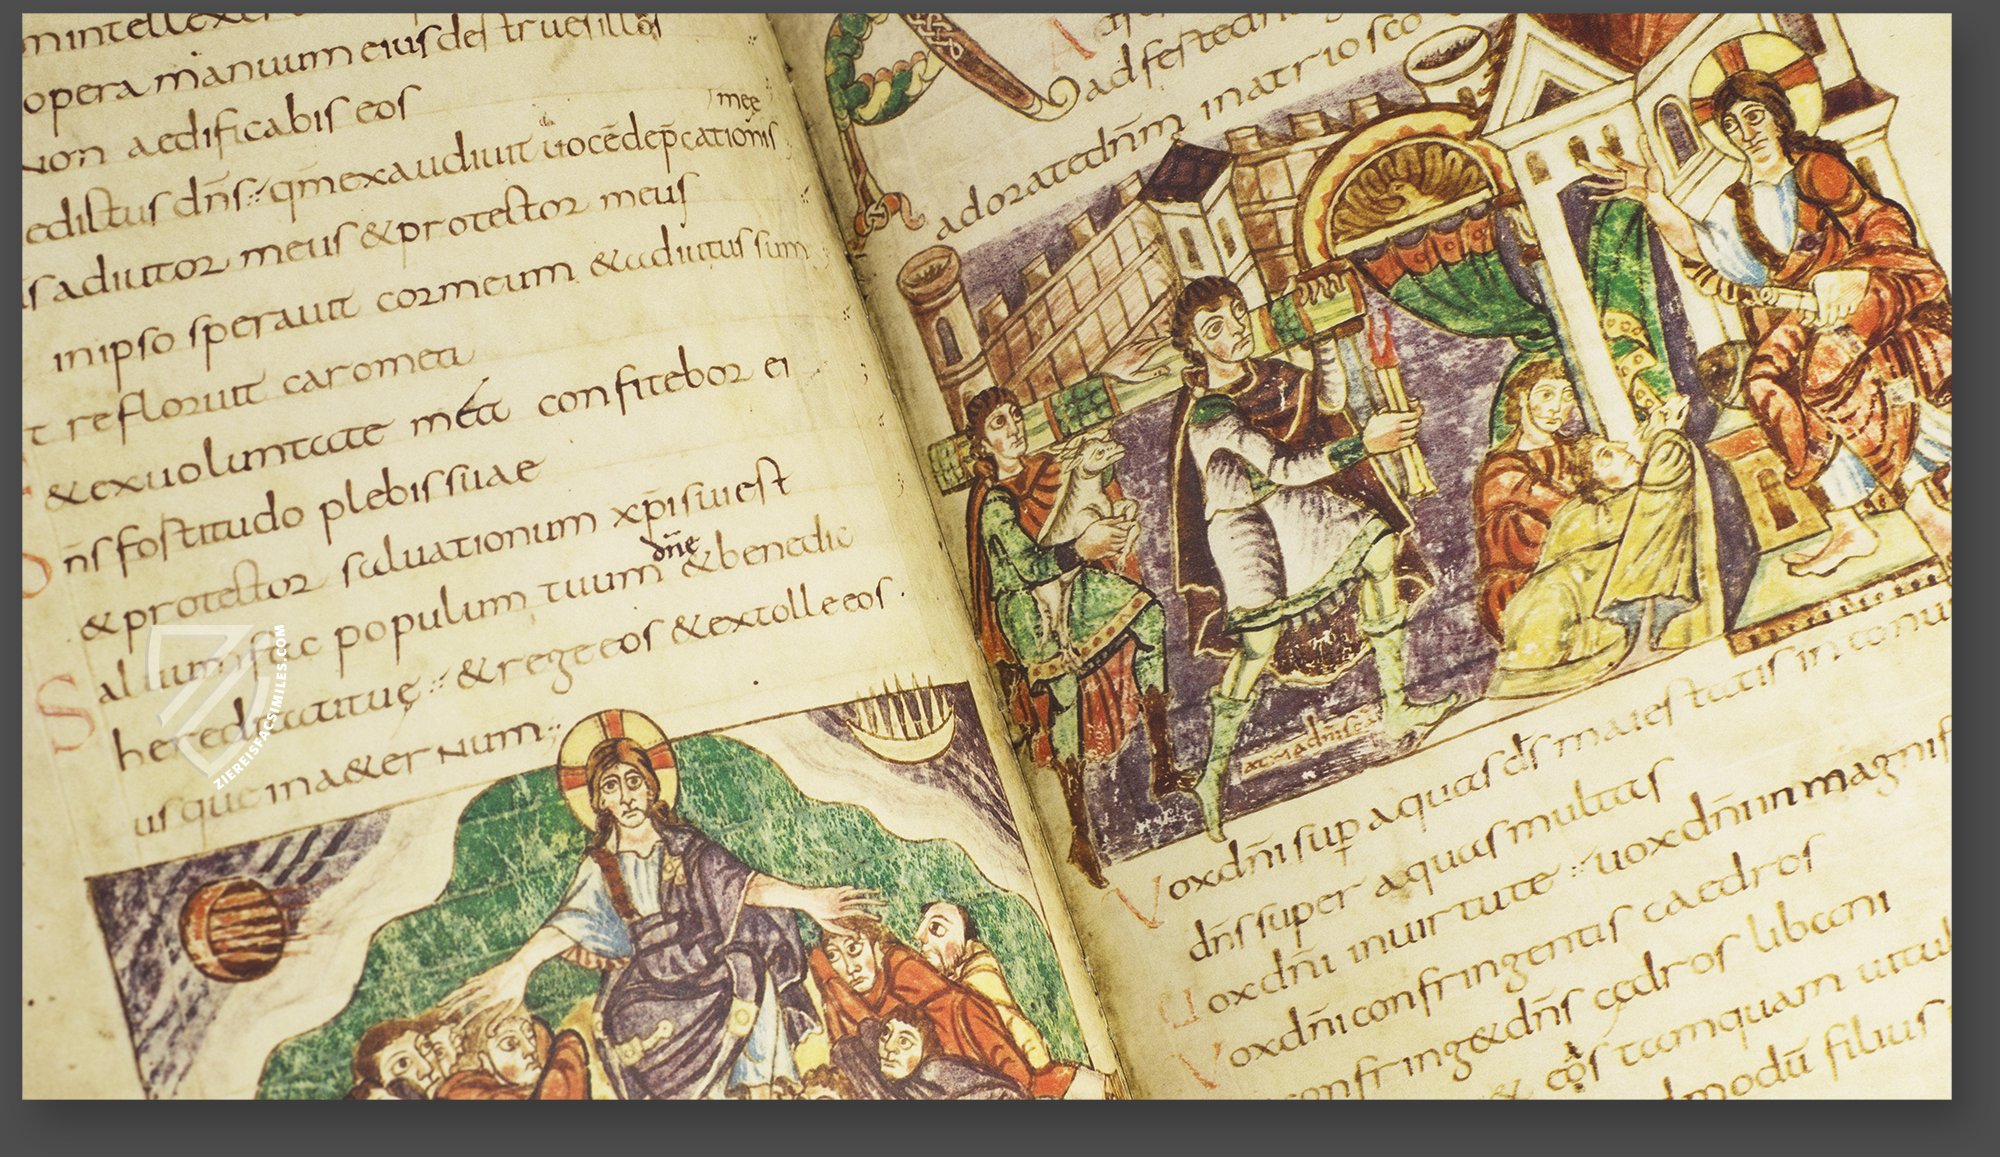 mintellexer
opera manuum eius destrues illos
non aedificabis eos
mee
edictus dn̄s qm̄ exaudiuit uocē dep̄cationis
adiutor meus & protector meus
inipso sperauit cor meum & adiutus sum
t refloruit caro mea
& exuoluntate mea confitebor ei
D
n̄s fostitudo plebis suae
& protector saluationum xp̄i sui est
dn̄e
S
aluum fac populum tuum & benedic
hereditati tuę & rege eos & extolle eos
usque in a&ernum
A
ad feste
adorate dn̄m in atrio sc̄o
Vox dn̄i sup aquas ds̄ maiestatis intonu
dn̄s super aquas multas
Uox dn̄i inuirtute uox dn̄i in magnif
Vox dn̄i confringentis caedros
confring& dn̄s cedros libani
& eos tamquam uitul
modū filius
ZIEREISFACSIMILES.COM